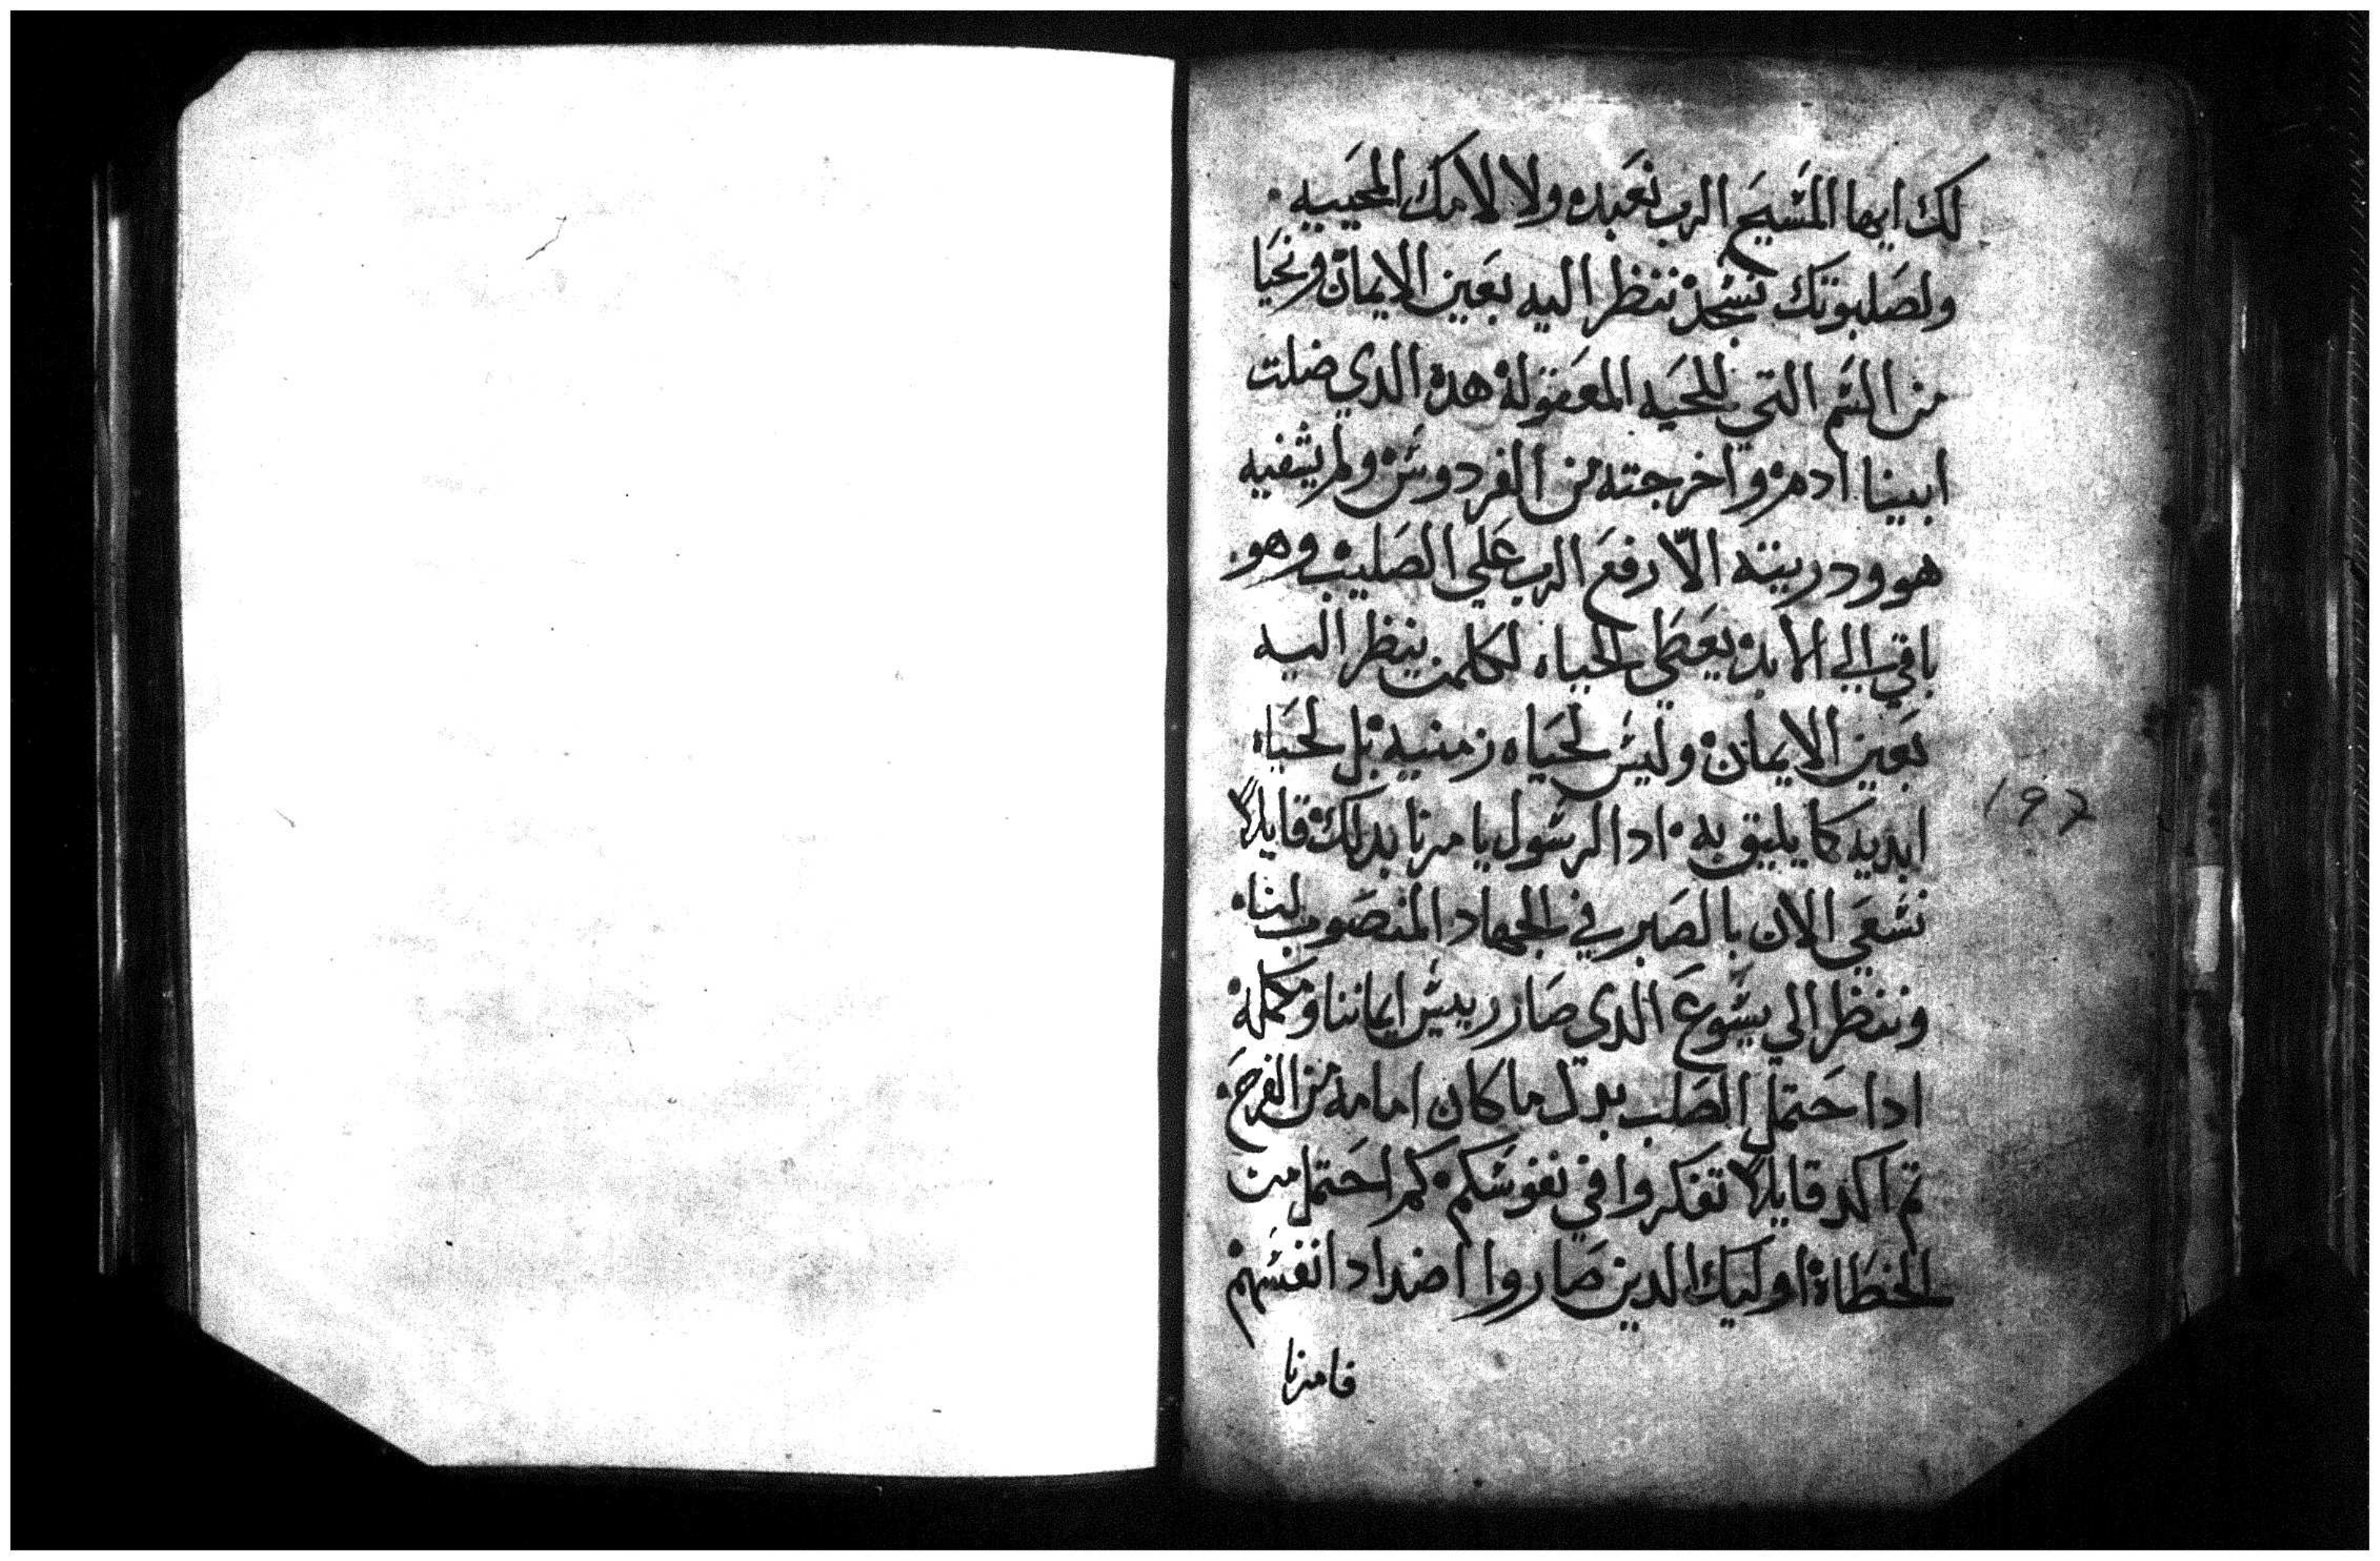 لك ايها المسيح الرب نعبده ولا لالامك المحييه
ولصلبوتك نسجد ننظر اليه بعين الايمان ونحيا
من السم التي للحيه المعقوله هده الدي ضلت
ابينا ادم واخرجته من الفردوس ولم يشفيه
هو ودريته الا رفع الرب علي الصليب وهو
باقي الي الابد يعطي الحياه لكلمن ينظر اليه
بعين الايمان وليس لحياه زمنيه بل لحياه
ابديه كما يليق به ادا الرسول يامرنا بدلك قايلا
نسعي الان بالصبر في الجهاد المنصوب لنا
وننظر الي يسوع الدي صار رييس ايماننا ومكمله
ادا حتمل الصلب بدل ما كان امامه من الفرح
تم اكد قايلا تفكروا في نفوسكم كم احتمل من
الخطاة اوليك الدين صاروا اضداد انفسهم
فامرنا
197